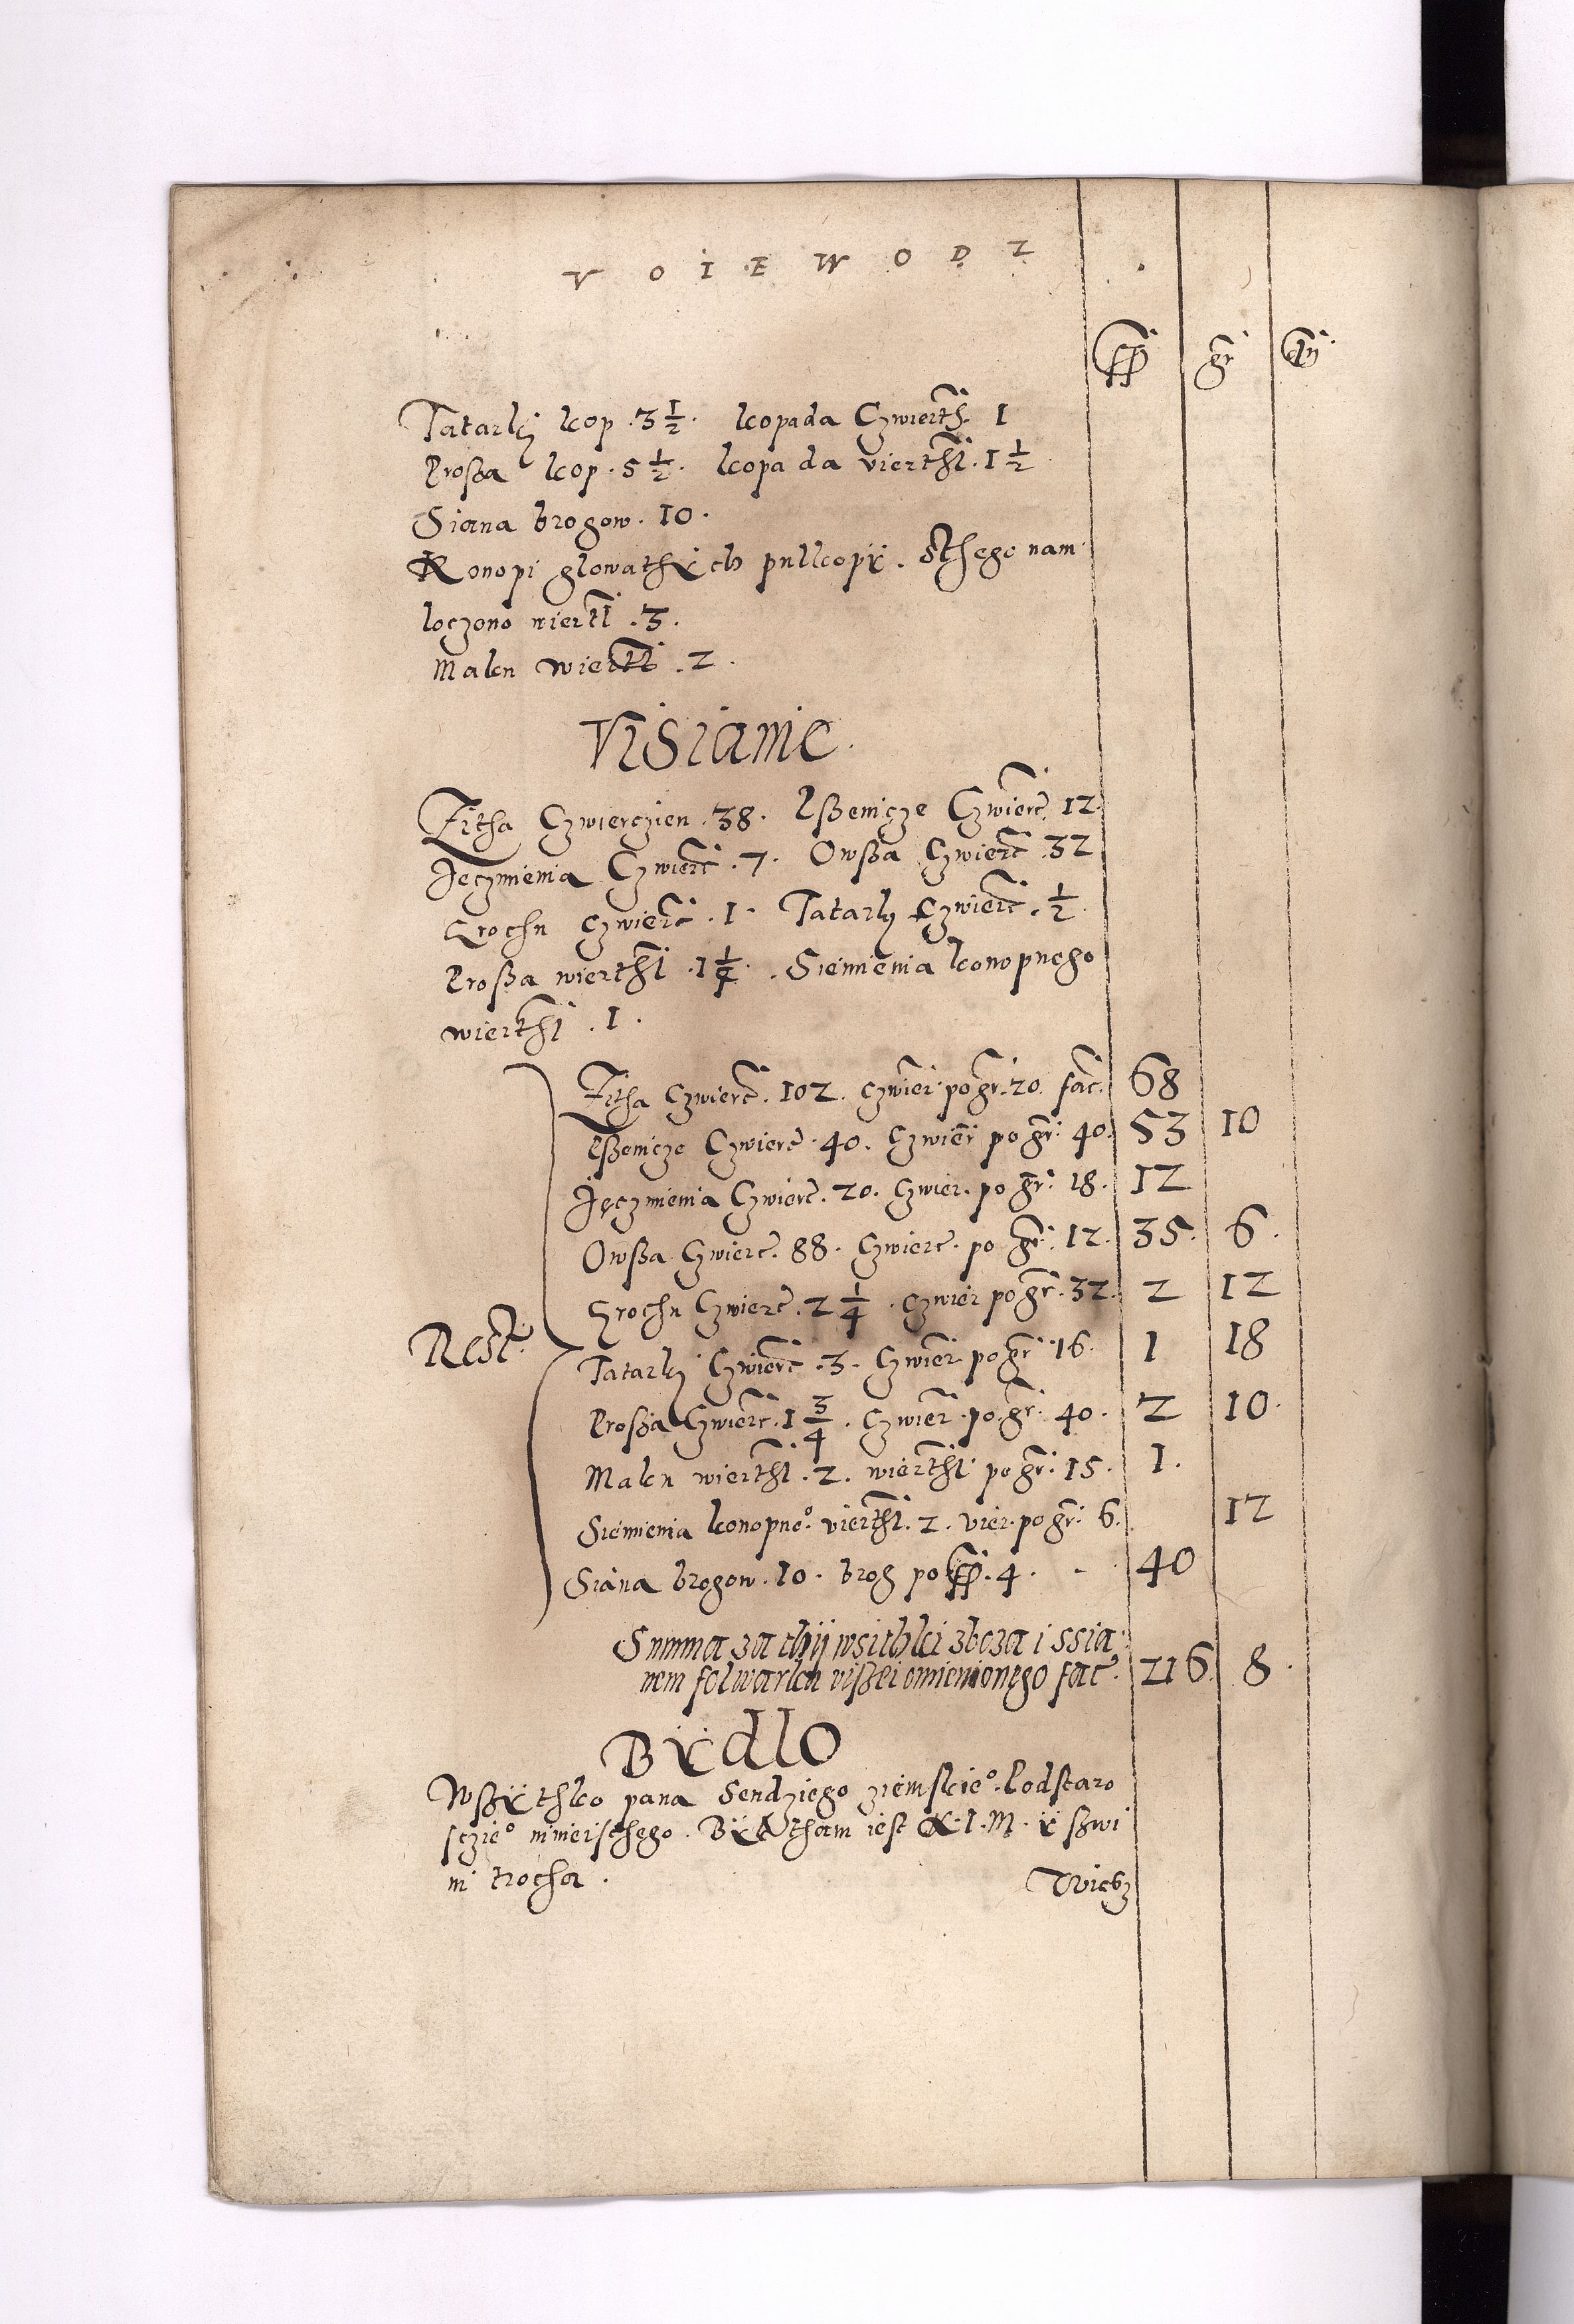 VOIEWODZ
ff gr d
Tatarky kop .3 1/2. kopa da Czwierth. 1
Prossa kop. 5 1/2. kopa da vierthl. 1 1/2
Siana brogow. 10.
Konopi glowathÿch pulkopÿ. Sthego nam
loczono wiertl .3.
Maku wiertl .2.
Visianie.
Zitha Czwierczien .38. Pssenicze Czwierc. 12.
Jeczmienia Czwierc .7. Owssa Czwierc .32
Grochu czwierc .1. Tatarky Czwierc. 1/2.
Prossa wierthl .1 1/4. Siemienia konopnego
wierthl .1.
Zitha Czwierc. 102. czwier po gr. 20. fac. 68
Pssenicze Czwierc. 40. Czwier po gr. 40. 53 10
Jęczmienia Czwierc. 20. Czwier. po gr. 18. 12
Owssa Czwierc. 88. Czwierc. po gr. 12. 35. 6.
Grochu Czwierc. 2 1/4. czwier po gr. 32. 2 12
Rest. Tatarky Czwierc .3. Czwier. po gr. 16. 1 18
Prossa Czwierc. 1 3/4. Czwier. po gr. 40. 2 10.
Maku wierthl .2. wierthl po gr. 15. 1.
Siemienia konopneo. vierthl. 2. vier. po gr. 6. 12
Siana brogow. 10. brog po ff. 4. 40
Summa za thÿ wsithki zboza i ssia
nem folwarku vissei omienionego fac. 216. 8.
BÿdlO
Wssÿthko pana Sendziego ziemskieo. Podstaro
sczieo mieisthego. Bÿdła tham iest K. I. M. ÿ sswi
ni trocha.